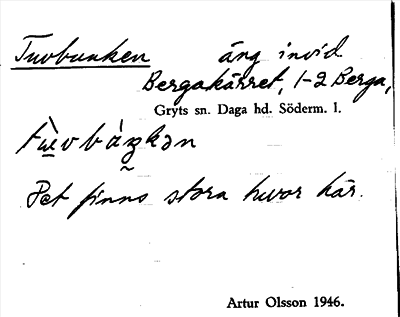 Tuvbunken äng invid
Bergakärret, 1-2 Berga,
Gryts sn. Daga hd. Söderm. l.
Det finns stora tuvor här.
Artur Olsson 1946.